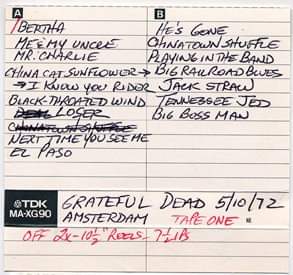 A
BERTHA
ME & MY UNCLE
MR. CHARLIE
CHINA CAT SUNFLOWER →
→ I KNOW YOU RIDER
BLACK-THROATED WIND
LOSER
CHINATOWN SHUFFLE
NEXT TIME YOU SEE ME
EL PASO
B
HE'S GONE
CHINATOWN SHUFFLE
PLAYING IN THE BAND
BIG RAILROAD BLUES
JACK STRAW
TENNESSEE JED
BIG BOSS MAN
TDK
MA-XG90
GRATEFUL DEAD 5/10/72
AMSTERDAM TAPE ONE
OFF 2x-10½" REELS - 7½ IPS